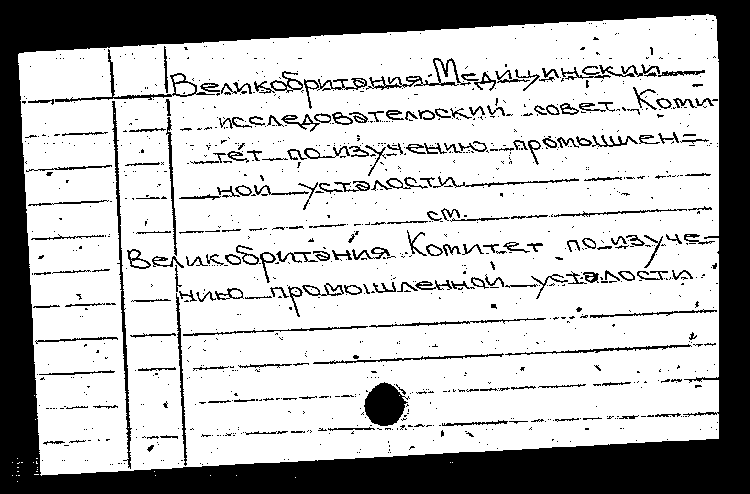 Великобритания. Медицинский
исследовательский совет. Коми-
тет по изучению промышлен=
ной усталости.
см.
Великобритания. Комитет по изуче=
нию промышленной усталости